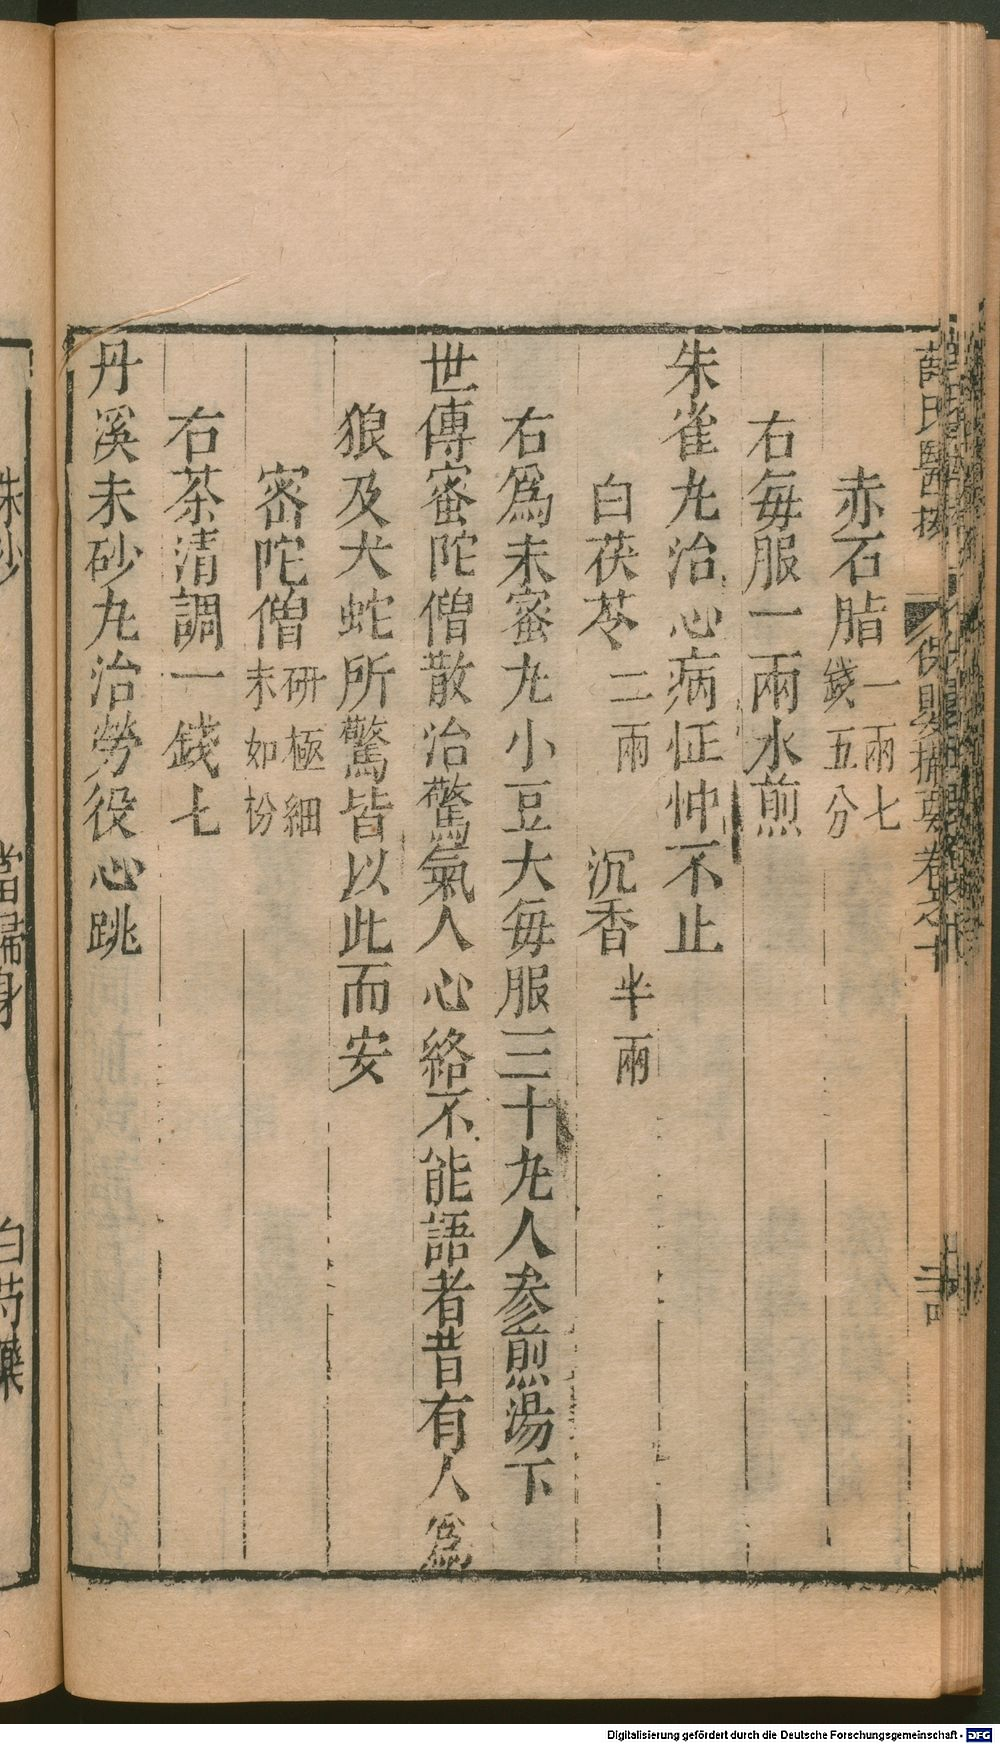 薛氏醫按 保嬰撮要卷之十
赤石脂一兩七錢五分
右每服一兩水煎
朱雀丸治心病怔忡不止
白茯苓二兩 沉香半兩
右爲末蜜丸小豆大每服三十丸人参煎湯下
世傳蜜陀僧散治驚氣人心絡不能語者昔有人爲
狼及犬蛇所驚皆以此而安
密陀僧研極細末如粉
右茶清調一錢七
丹溪朱砂丸治勞役心跳
硃砂 當歸身 白芍藥
Digitalisierung gefördert durch die Deutsche Forschungsgemeinschaft - DFG